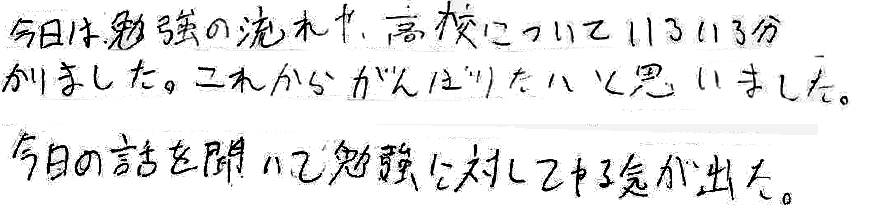 今日は勉強の流れや、高校についていろいろ分
かりました。これからがんばりたいと思いました。
今日の話を聞いて勉強に対してやる気が出た。